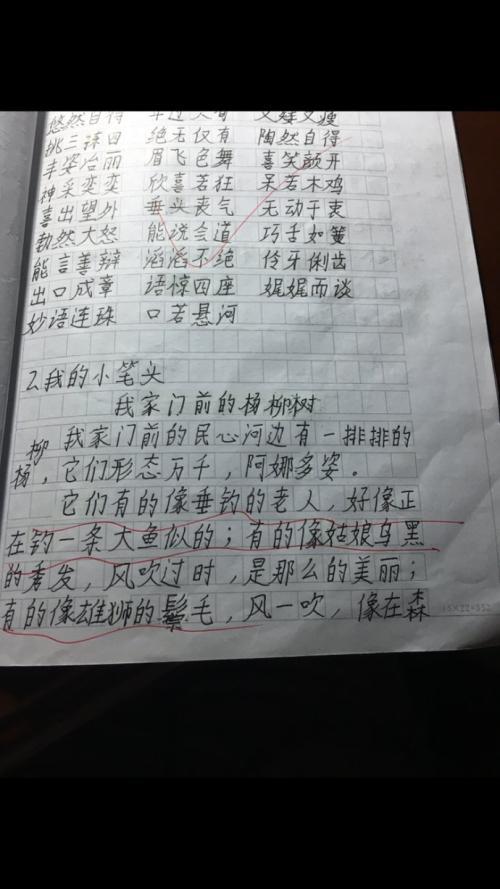 悠然自得
挑三拣四 绝无仅有 陶然自得
丰姿冶丽 眉飞色舞 喜笑颜开
神采奕奕 欣喜若狂 呆若木鸡
喜出望外 垂头丧气 无动于衷
勃然大怒 能说会道 巧舌如簧
能言善辩 滔滔不绝 伶牙俐齿
出口成章 语惊四座 娓娓而谈
妙语连珠 口若悬河
2.我的小笔头
我家门前的杨柳树
我家门前的民心河边有一排排的
杨柳,它们形态万千,阿娜多姿。
它们有的像垂钓的老人,好像正
在钓一条大鱼似的;有的像姑娘乌黑
的秀发,风吹过时,是那么的美丽;
有的像雄狮的鬃毛,风一吹,像在森